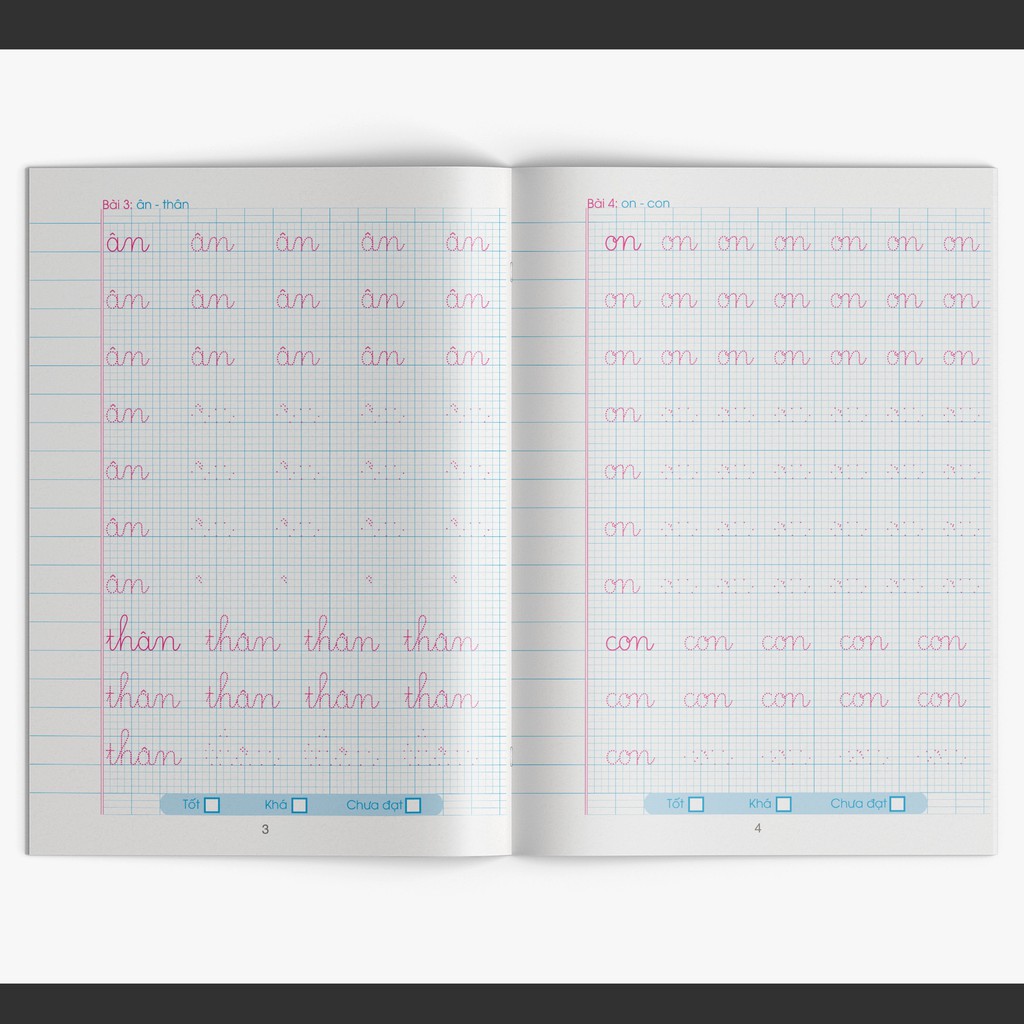 Bài 3: ân - thân
ân ân ân ân ân
ân ân ân ân ân
ân ân ân ân ân
ân
ân
ân
ân
thân thân thân thân
thân thân thân thân
thân
Tốt Khá Chưa đạt
3
Bài 4: on - con
on on on on on on on
on on on on on on on
on on on on on on on
on
on
on
on
con con con con con
con con con con con
con
Tốt Khá Chưa đạt
4